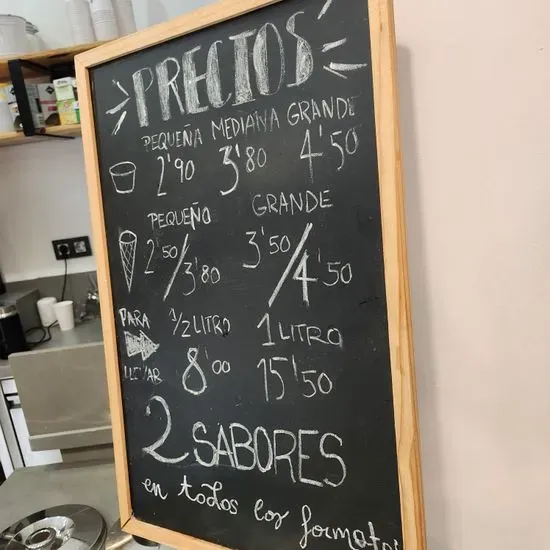 PRECIOS
PEQUEÑA MEDIANA GRANDE
2'90 3'80 4'50
PEQUEÑO GRANDE
2'50/3'80 3'50/4'50
PARA LLEVAR 1/2 LITRO 1 LITRO
8'00 15'50
2 SABORES
en todos los formatos